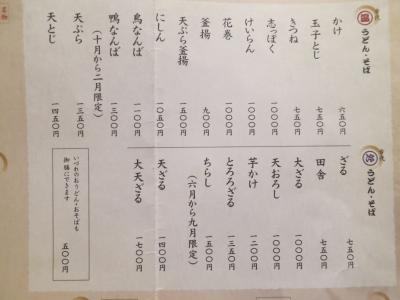 温 うどん・そば
かけ 六五〇円
玉子とじ 七五〇円
きつね 七五〇円
志っぽく 一〇〇〇円
けいらん 一〇〇〇円
花巻 一〇〇〇円
釜揚 九〇〇円
天ぷら釜揚
にしん 一〇五〇円
鳥なんば 一一〇〇円
鴨なんば 一三〇〇円
（十月から二月限定）
天ぷら 一三五〇円
天とじ 一四五〇円
冷 うどん・そば
ざる 七五〇円
田舎 七五〇円
大ざる 一〇〇〇円
天おろし 一〇〇〇円
芋かけ 一二〇〇円
とろろざる 一三五〇円
ちらし 一五〇〇円
（六月から九月限定）
天ざる 一四〇〇円
大天ざる 一七〇〇円
いづれのおうどん・おそばも
御膳にできます
五〇〇円